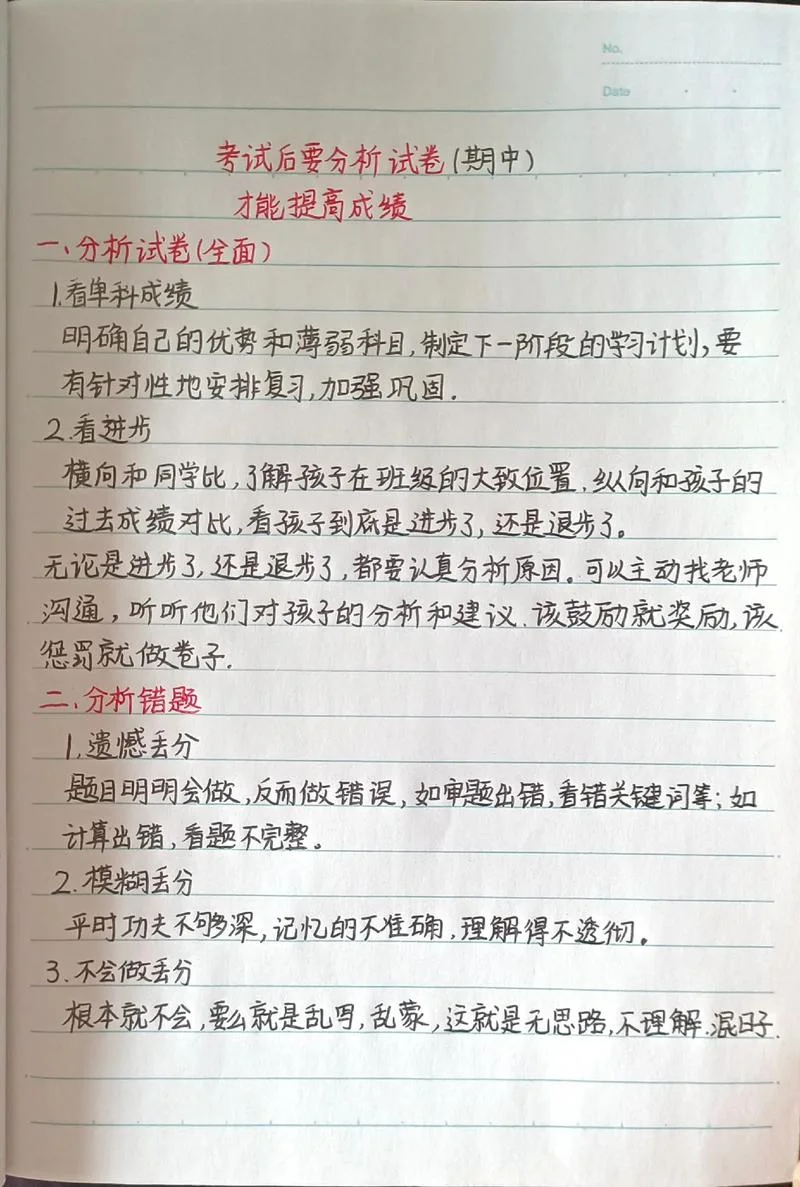 No.
Date
考试后要分析试卷(期中)
才能提高成绩
一、分析试卷(全面)
1.看单科成绩
明确自己的优势和薄弱科目,制定下一阶段的学习计划,要
有针对性地安排复习,加强巩固.
2.看进步
横向和同学比,了解孩子在班级的大致位置.纵向和孩子的
过去成绩对比,看孩子到底是进步了,还是退步了。
无论是进步了,还是退步了,都要认真分析原因。可以主动找老师
沟通,听听他们对孩子的分析和建议.该鼓励就奖励,该
惩罚就做卷子.
二、分析错题
1.遗憾丢分
题目明明会做,反而做错误,如审题出错,看错关键词等;如
计算出错,看题不完整。
2.模糊丢分
平时功夫不够深,记忆的不准确,理解得不透彻。
3.不会做丢分
根本就不会,要么就是乱写,乱蒙,这就是无思路,不理解.混日子.